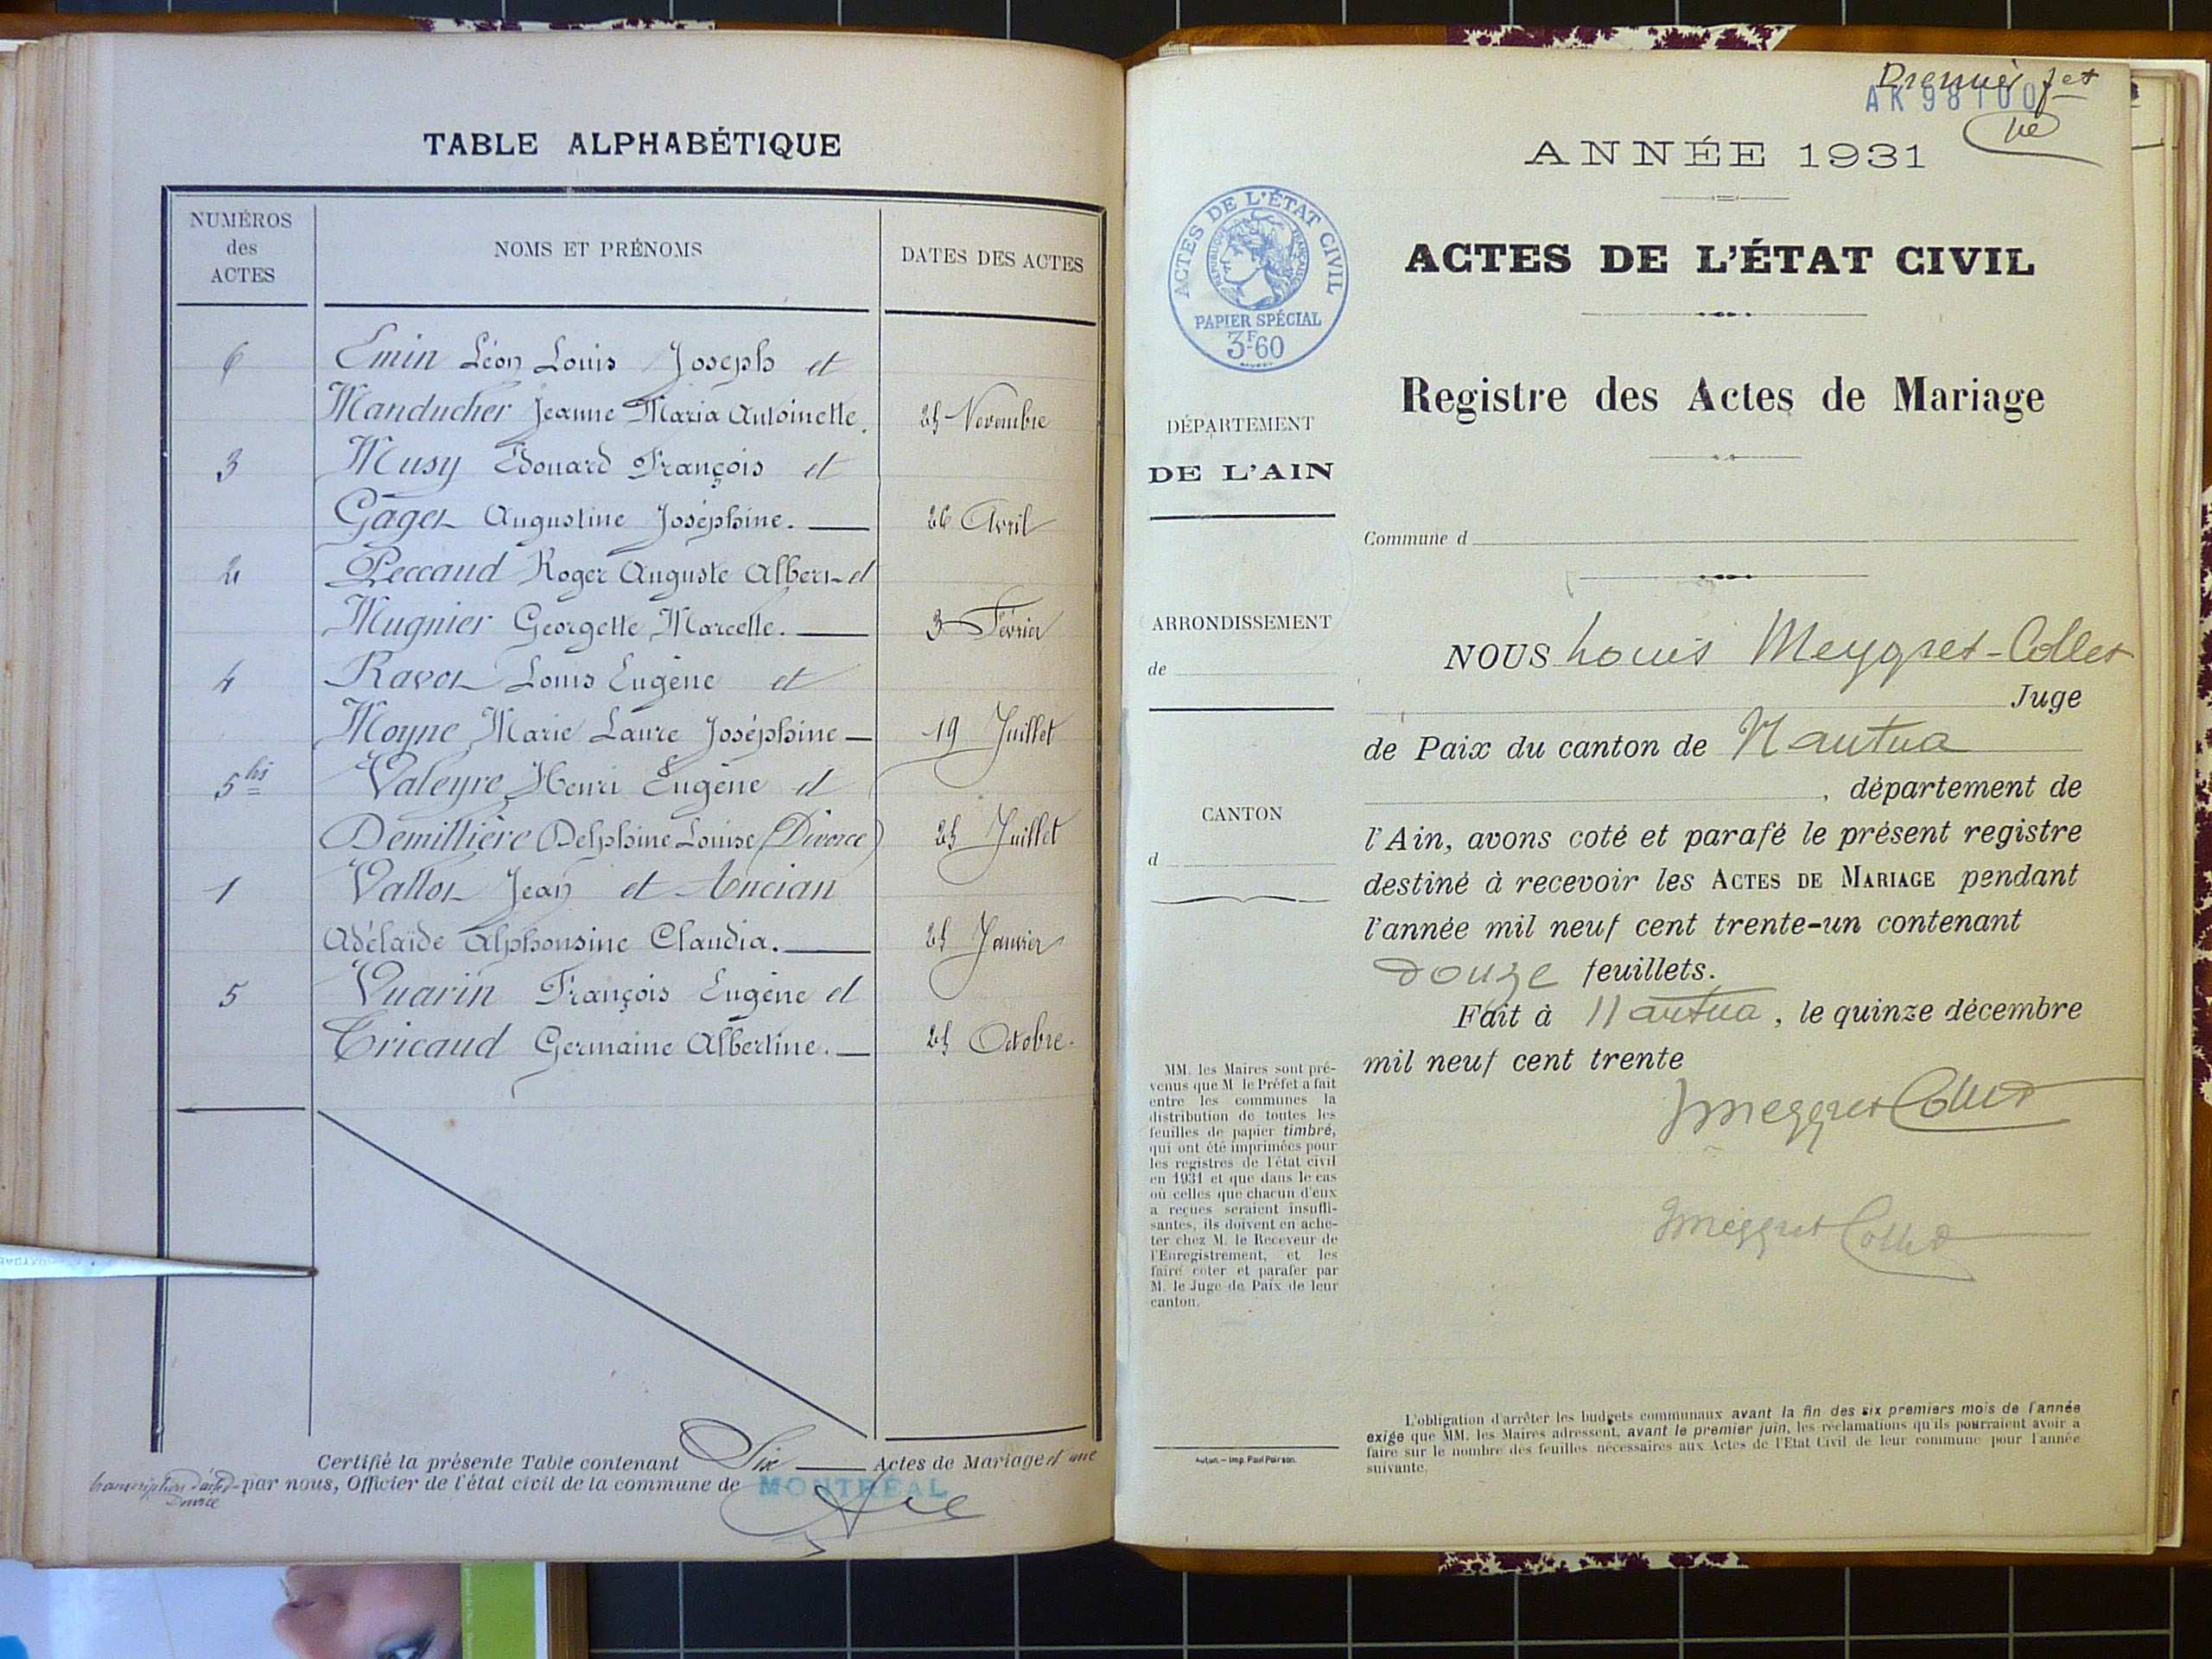 TABLE ALPHABÉTIQUE
NUMÉROS
des
ACTES
NOMS ET PRÉNOMS
DATES DES ACTES
6 Emin Léon Louis Joseph et
Manducher Jeanne Maria Antoinette. 25 Novembre
3 Musy Edouard François et
Gaget Augustine Joséphine. 26 Avril
2 Peccaud Roger Auguste Albert et
Mugnier Georgette Marcelle. 3 Février
4 Ravot Louis Eugène et
Moyne Marie Laure Joséphine 19 Juillet
5 bis Valeyre Henri Eugène et
Demillière Delphine Louise (Divorce) 25 Juillet
1 Vallot Jean et Ancian
Adélaïde Alphonsine Claudia. 25 Janvier
5 Vuarin François Eugène et
Tricaud Germaine Albertine. 25 Octobre.
Certifié la présente Table contenant Six Actes de Mariage et une
transcription d'acte de Divorce par nous, Officier de l'état civil de la commune de MONTRÉAL
Premier fet
AK 98100
ANNÉE 1931
ACTES DE L'ÉTAT CIVIL
RÉPUBLIQUE FRANÇAISE
PAPIER SPÉCIAL
3F60
ACTES DE L'ÉTAT CIVIL
Registre des Actes de Mariage
DÉPARTEMENT
DE L'AIN
Commune d
ARRONDISSEMENT
de
CANTON
d
NOUS Louis Meygret-Collet
Juge
de Paix du canton de Nantua
, département de
l'Ain, avons coté et parafé le présent registre
destiné à recevoir les ACTES DE MARIAGE pendant
l'année mil neuf cent trente-un contenant
douze feuillets.
Fait à Nantua, le quinze décembre
mil neuf cent trente
Meygret Collet
Meygret Collet
MM. les Maires sont pré-
venus que M. le Préfet a fait
entre les communes la
distribution de toutes les
feuilles de papier timbré,
qui ont été imprimées pour
les registres de l'état civil
en 1931 et que dans le cas
où celles que chacun d'eux
a reçues seraient insuffi-
santes, ils doivent en ache-
ter chez M. le Receveur de
l'Enregistrement, et les
faire coter et parafer par
M. le Juge de Paix de leur
canton.
Autun. — Imp. Paul Poirson.
L'obligation d'arrêter les budgets communaux avant la fin des six premiers mois de l'année
exige que MM. les Maires adressent, avant le premier juin, les réclamations qu'ils pourraient avoir à
faire sur le nombre des feuilles nécessaires aux Actes de l'Etat Civil de leur commune pour l'année
suivante.